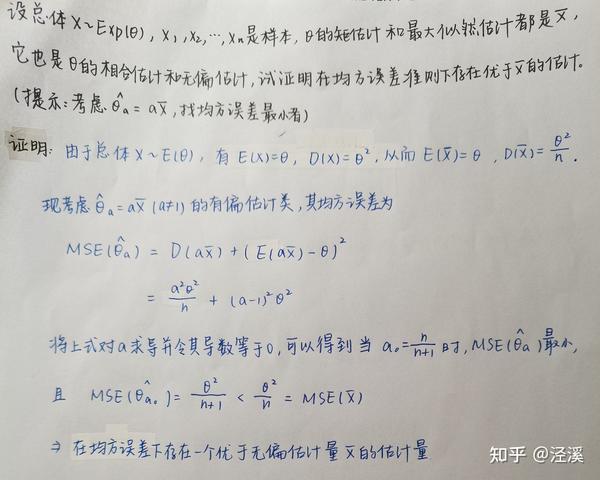 设总体 X~Exp(θ), x₁,x₂,…,xₙ是样本, θ的矩估计和最大似然估计都是x̄,
它也是θ的相合估计和无偏估计, 试证明在均方误差准则下存在优于x̄的估计。
(提示:考虑 θ̂ₐ = ax̄, 找均方误差最小者)
证明: 由于总体 X~E(θ), 有 E(X)=θ, D(X)=θ², 从而 E(x̄)=θ, D(x̄)=θ²/n.
现考虑 θ̂ₐ=ax̄ (a≠1) 的有偏估计类, 其均方误差为
MSE(θ̂ₐ) = D(ax̄) + (E(ax̄)-θ)²
= a²θ²/n + (a-1)²θ²
将上式对a求导并令其导数等于0, 可以得到当 a₀=n/(n+1) 时, MSE(θ̂ₐ)最小,
且 MSE(θ̂ₐ₀)= θ²/(n+1) < θ²/n = MSE(x̄)
⇒ 在均方误差下存在一个优于无偏估计量x̄的估计量
知乎 @泾溪